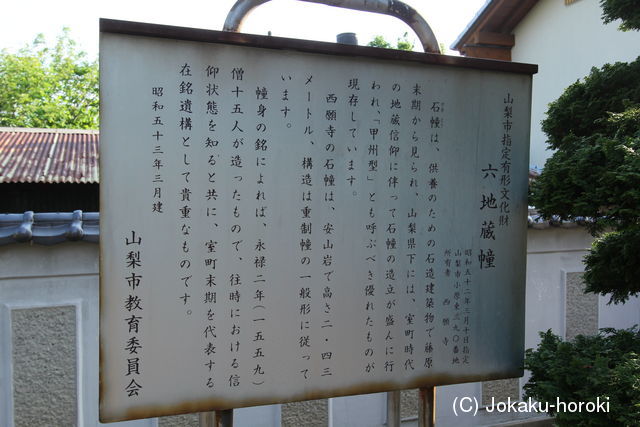 山梨市指定有形文化財
六地蔵幢
昭和五十二年三月十日指定
山梨市小原東三九〇番地
所有者　西願寺
石幢は、供養のための石造建築物で藤原
末期から見られ、山梨県下には、室町時代
の地蔵信仰に伴って石幢の造立が盛んに行
われ、「甲州型」とも呼ぶべき優れたものが
現存しています。
西願寺の石幢は、安山岩で高さ二・四三
メートル、構造は重制幢の一般形に従って
います。
幢身の銘によれば、永禄二年（一五五九）
僧十五人が造ったもので、往時における信
仰状態を知ると共に、室町末期を代表する
在銘遺構として貴重なものです。
昭和五十三年三月建
山梨市教育委員会
(C) Jokaku-horoki